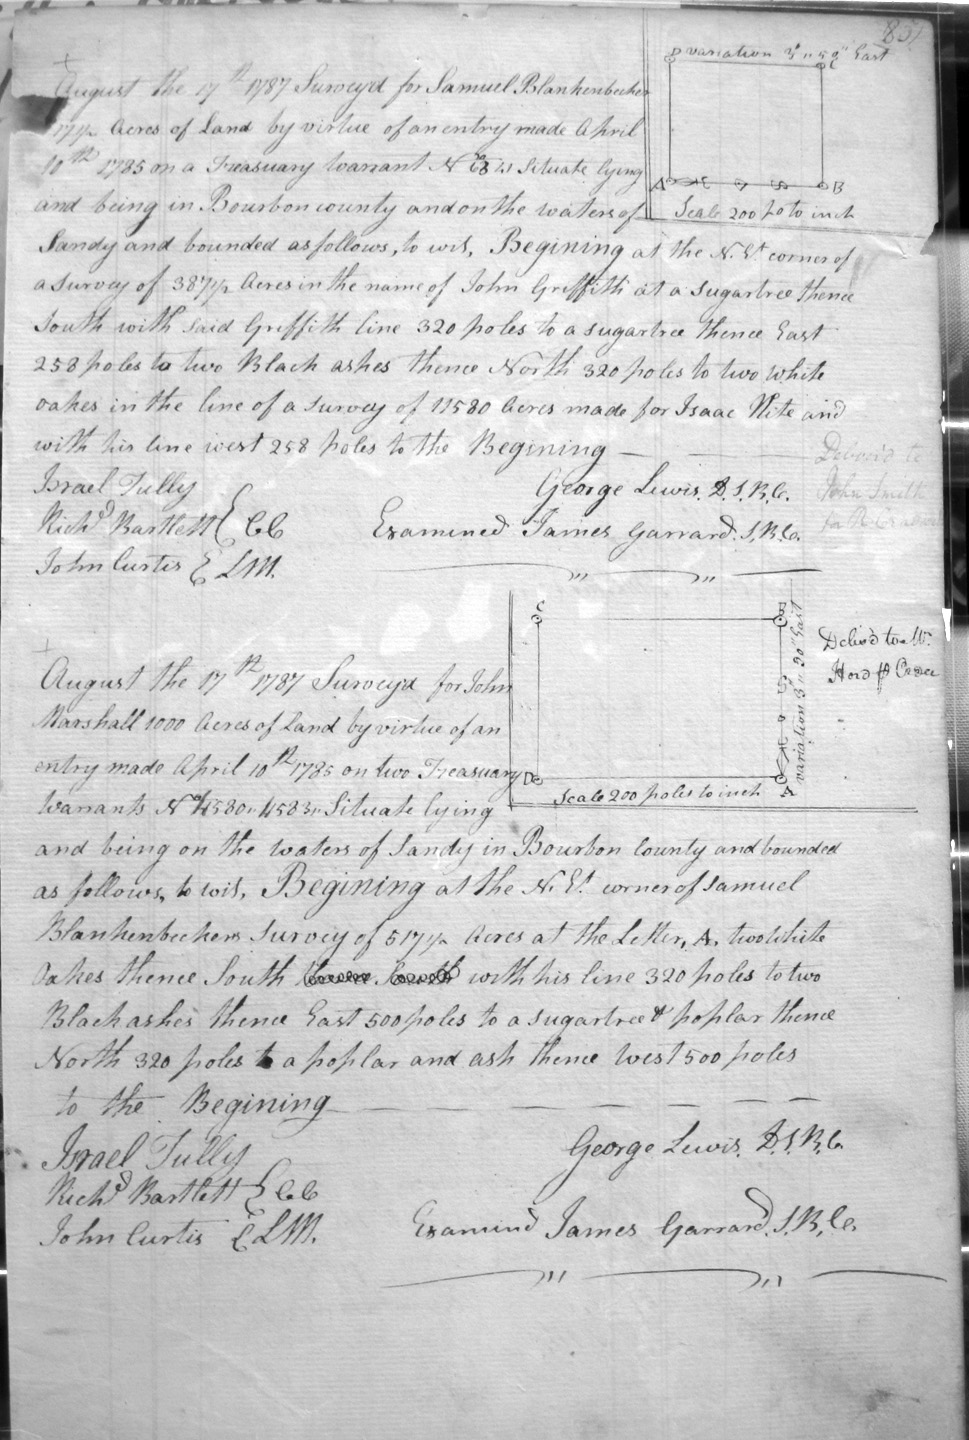 85
D variation 3° " 50" East
C
A
B
Scale 200 po to inch
August the 17th 1787 Survey'd for Samuel Blankenbecker
517½ Acres of Land by virtue of an entry made April
10th 1785 on a Treasuary Warrant No Situate lying
and being in Bourbon county and on the waters of
Sandy and bounded as follows, to wit, Begining at the N. Et corner of
a survey of 387½ Acres in the name of John Griffith at a sugartree thence
South with said Griffith line 320 poles to a sugartree thence East
258 poles to two Black ashes thence North 320 poles to two white
oakes in the line of a survey of 11580 Acres made for Isaac Hite and
with his line west 258 poles to the Begining
Deliver'd to
John Smith
for
Israel Tully
Richd Bartlett } CC
John Curtis } LM.
George Lewis. D.S.B.C.
Examined James Garrard. S.B.Co.
C
B
D
A
variation 3° " 30" East
Scale 200 poles to inch
Delivd to Mr.
Hord
August the 17th 1787 Survey'd for John
Marshall 1000 Acres of Land by virtue of an
entry made April 10th 1785 on two Treasuary
Warrants No 4580 " 4583 " Situate lying
and being on the waters of Sandy in Bourbon County and bounded
as follows, to wit, Begining at the N. Et corner of Samuel
Blankenbeckers Survey of 517½ Acres at the Letter, A, two White
Oakes thence South with his line 320 poles to two
Black ashes thence East 500 poles to a sugartree & poplar thence
North 320 poles to a poplar and ash thence West 500 poles
to the Begining
Israel Tully
Richd Bartlett } CC
John Curtis } LM.
George Lewis. D.S.B.C.
Examined James Garrard. S.B.Co.